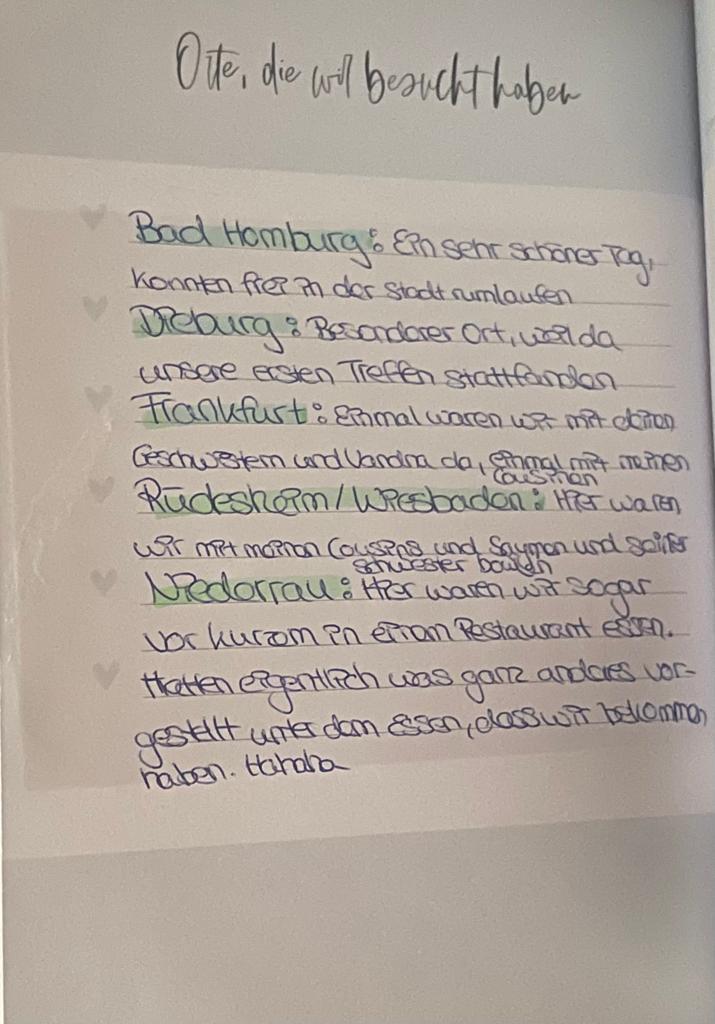 Orte, die wir besucht haben
Bad Homburg: Ein sehr schöner Tag,
konnten frei in der Stadt rumlaufen
Dieburg: Besonderer Ort, weil da
unsere ersten Treffen stattfanden
Frankfurt: Einmal waren wir mit deinen
Geschwistern und da, einmal mit meinen
Cousinen
Rüdesheim/Wiesbaden: Hier waren
wir mit meinen Cousins und Saymon und seiner
Schwester bowlen
Niederrau: Hier waren wir sogar
vor kurzem in einem Restaurant essen.
Hatten eigentlich was ganz anderes vor-
gestellt unter dem Essen, dass wir bekommen
haben. Hahaha